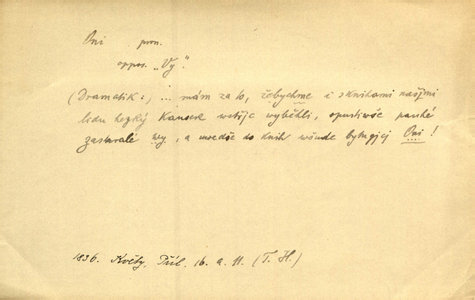 Oni pron.
oppos. „Vy“.
(Dramatik:) ... mám za to, žebychme i s knihami našimi
lidu hezký kousek wstříc wyběhli, opustiwše pauhé
zastaralé wy, a uwedše do knih wšude bytugjcj Oni!
1836. Květy, Příl. 16. a 11. (T. H.)